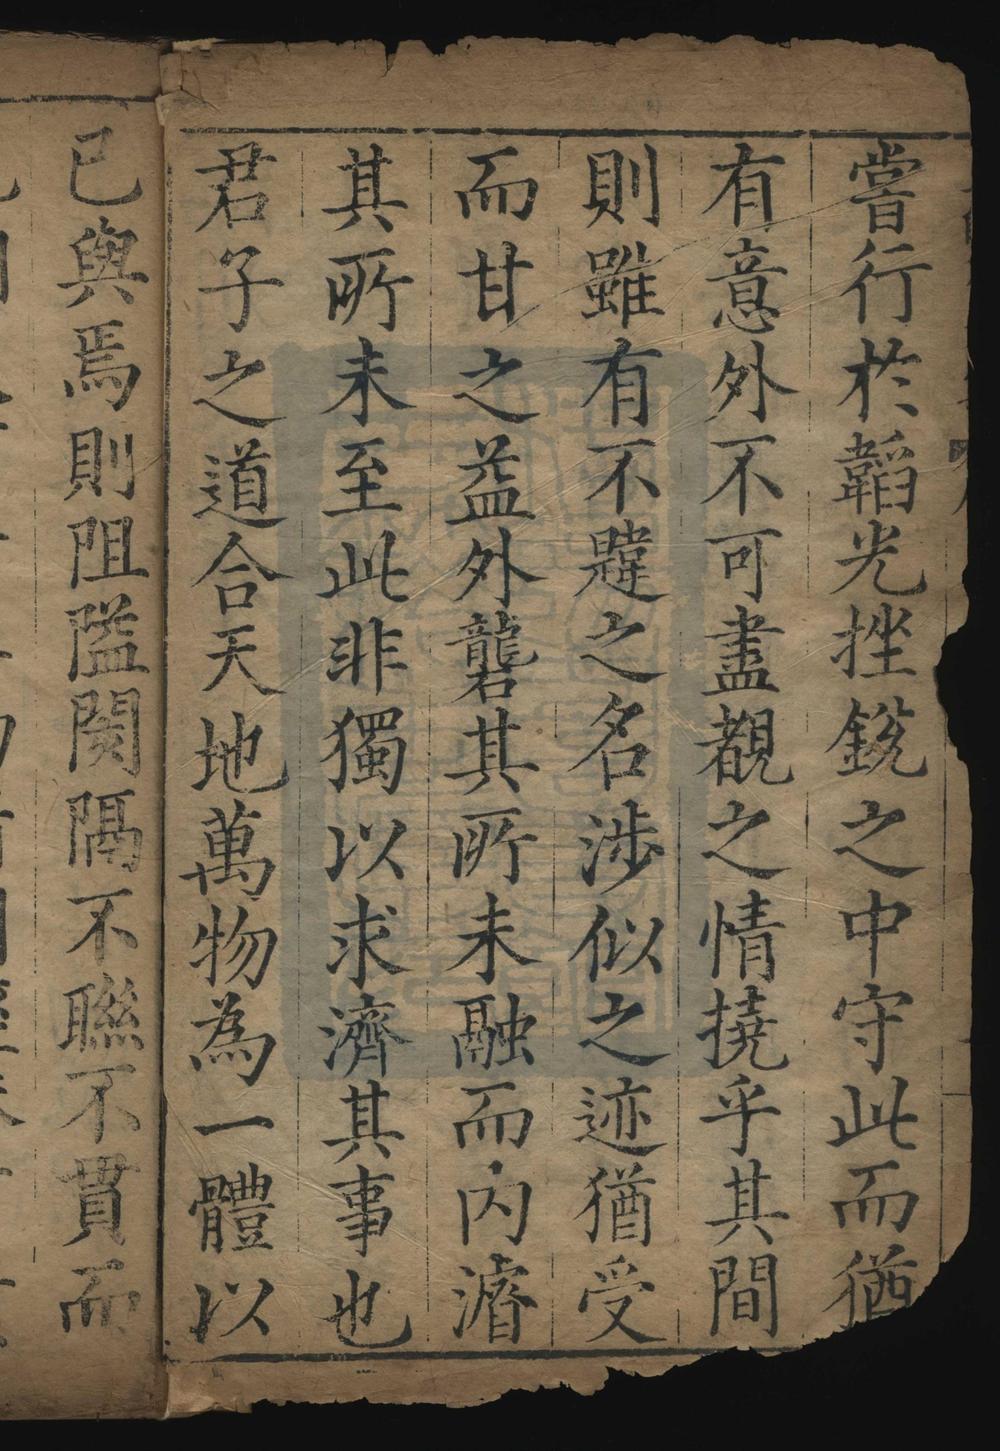 嘗行於韜光挫銳之中守此而猶
有意外不可盡覩之情撓乎其間
則雖有不韙之名涉似之迹猶受
而甘之益外礱其所未融而內濬
其所未至此非獨以求濟其事也
君子之道合天地萬物為一體以
已與焉則阻隘閡隔不聯不貫而